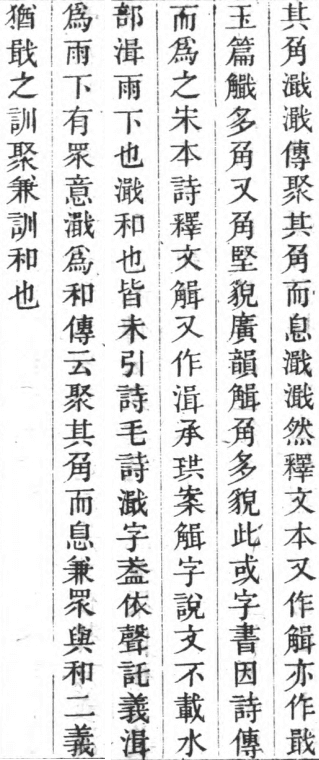 其角濈濈傳聚其角而息濈濈然釋文本又作觠亦作戢
玉篇觠多角又角堅貌廣韻觠角多貌此或字書因詩傳
而爲之宋本詩釋文觠又作湒承珙案觠字說文不載水
部湒雨下也濈和也皆未引詩毛詩濈字葢依聲託義湒
爲雨下有眾意濈爲和傳云聚其角而息兼眾與和二義
猶戢之訓聚兼訓和也